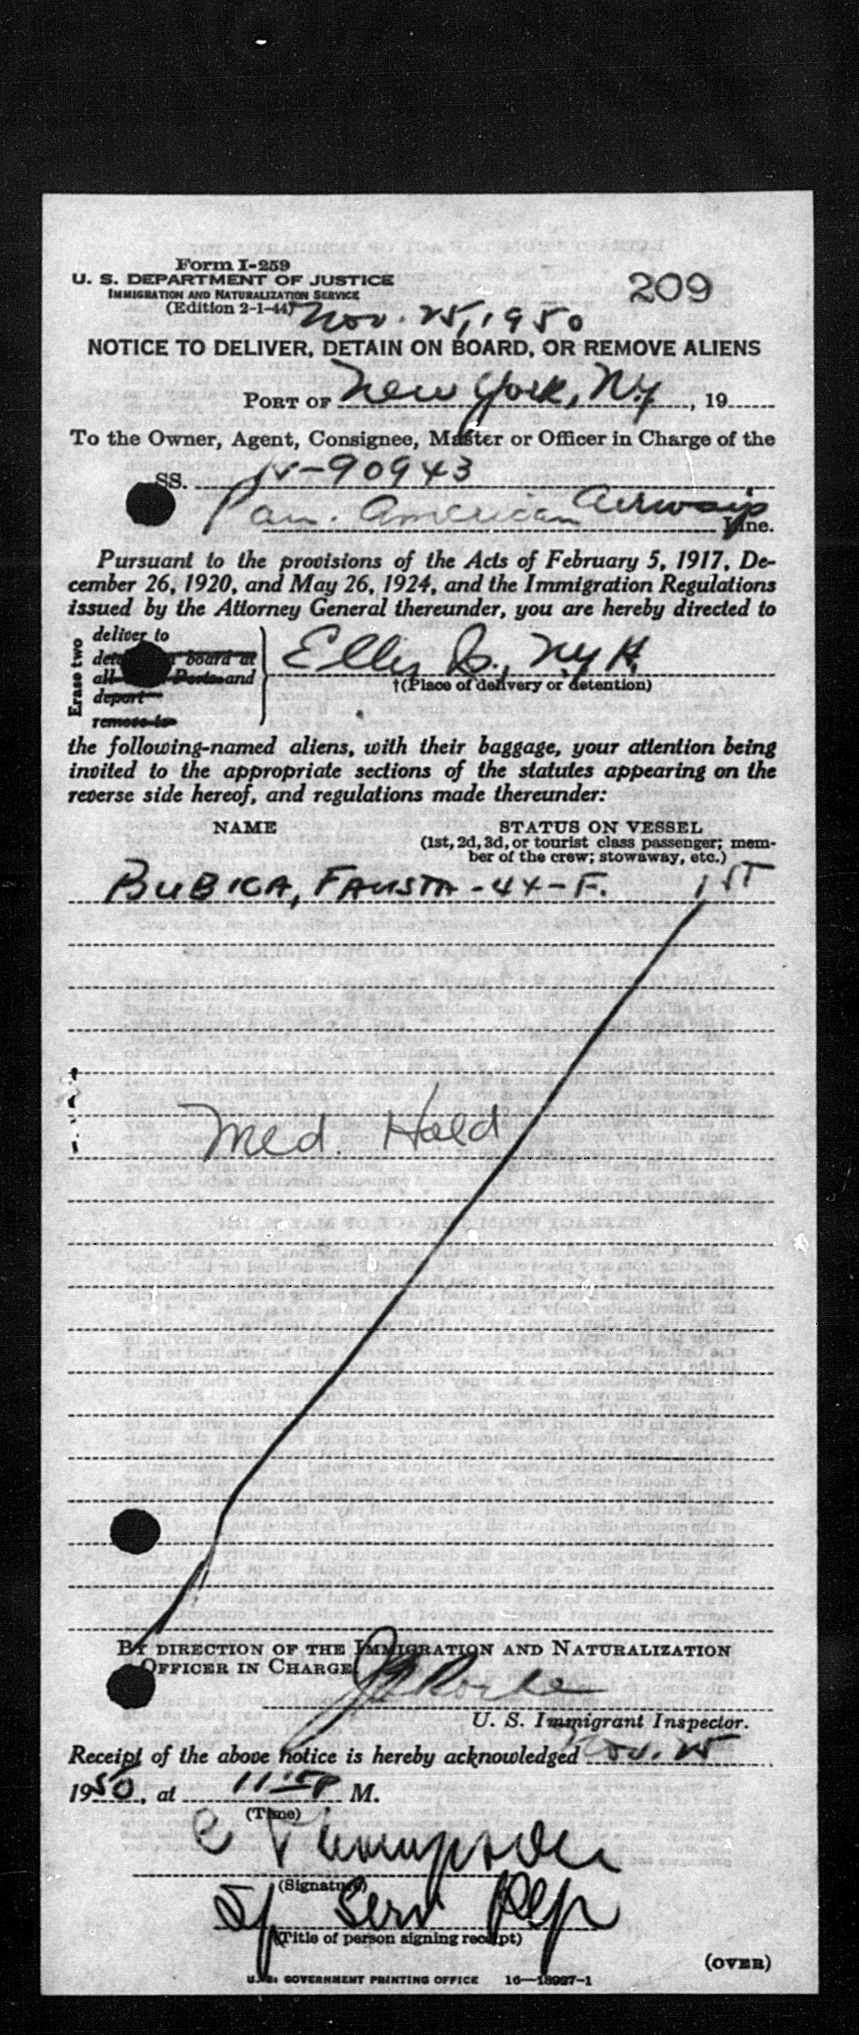 Form I-259
U. S. DEPARTMENT OF JUSTICE
IMMIGRATION AND NATURALIZATION SERVICE
(Edition 2-1-44)
209
Nov. 25, 1950
NOTICE TO DELIVER, DETAIN ON BOARD, OR REMOVE ALIENS
PORT OF New York, N.Y., 19
To the Owner, Agent, Consignee, Master or Officer in Charge of the
SS. N-90943
Pan. American Airways Line.
Pursuant to the provisions of the Acts of February 5, 1917, De-
cember 26, 1920, and May 26, 1924, and the Immigration Regulations
issued by the Attorney General thereunder, you are hereby directed to
Erase two
deliver to
board at
all Ports and
deport
remove to
Ellis Is., N.Y.H.
†(Place of delivery or detention)
the following-named aliens, with their baggage, your attention being
invited to the appropriate sections of the statutes appearing on the
reverse side hereof, and regulations made thereunder:
NAME STATUS ON VESSEL
(1st, 2d, 3d, or tourist class passenger; mem-
ber of the crew; stowaway, etc.)
BUBICA, FAUSTA - 44 - F. 1ST
Med. Hold
BY DIRECTION OF THE IMMIGRATION AND NATURALIZATION
OFFICER IN CHARGE
U. S. Immigrant Inspector.
Receipt of the above notice is hereby acknowledged Nov. 25
1950, at 11:50 P M.
(Time)
C Thompson
(Signature)
Sp Serv Rep
(Title of person signing receipt)
(OVER)
U.S. GOVERNMENT PRINTING OFFICE 16—18927-1